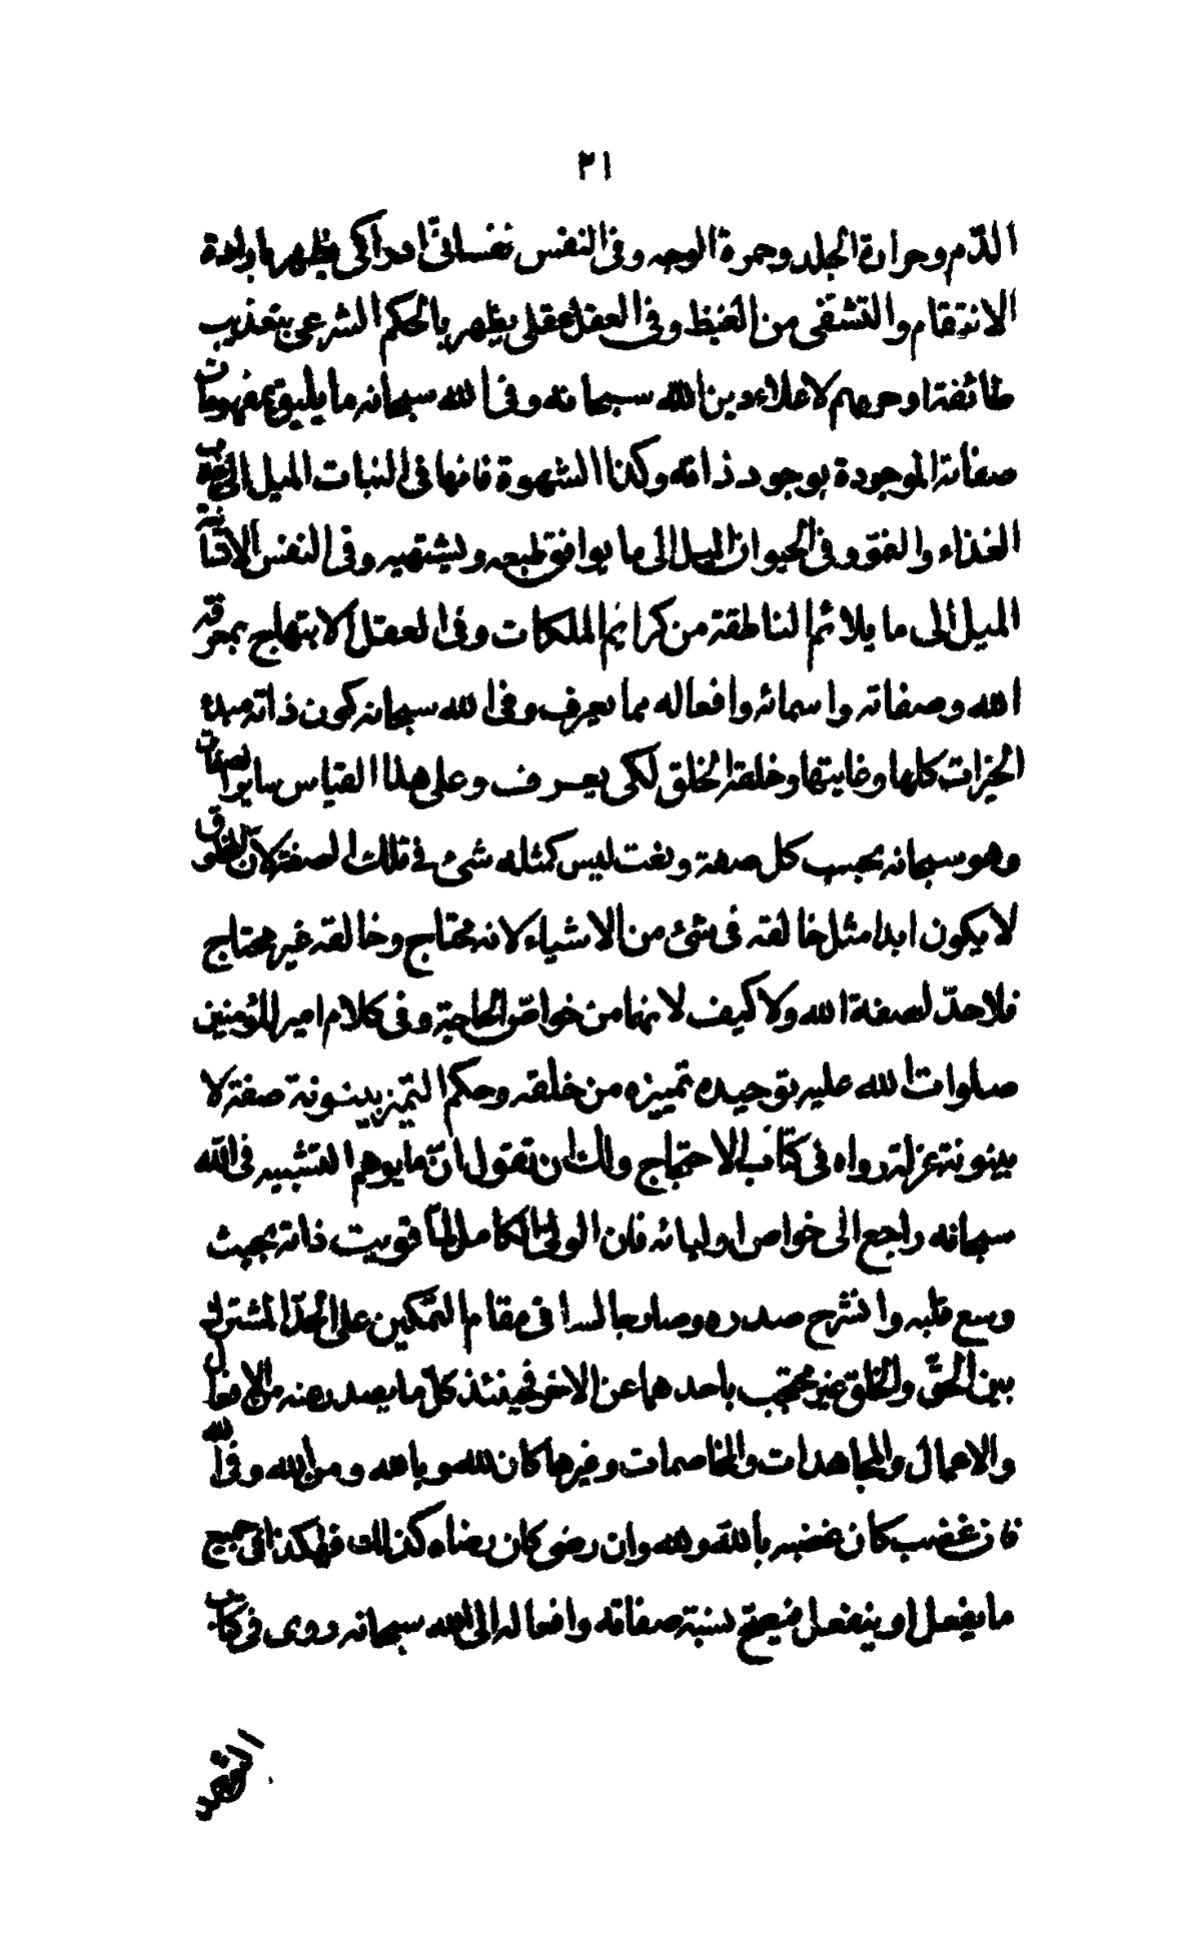 ٢١
الدّم وحرارة الجلد وحمرة الوجه وفى النفس نفسانىّ ادراكى يظهر بارادة
الانتقام والتشفى من الغيظ وفى العقل عقلى يظهر بالحكم الشرعى بتعذيب
طائفة او حربهم لاعلاء دين الله سبحانه وفى الله سبحانه ما يليق بمفهومات
صفاته الموجودة بوجود ذاته وكذا الشهوة فانها فى النبات الميل الى جذب
الغذاء والنمّو وفى الحيوان الميل الى ما يوافق طبعه ويشتهيه وفى النفس الانسانية
الميل الى ما يلائم الناطقة من كرائم الملكات وفى العقل الابتهاج بمعرفة
الله وصفاته واسمائه وافعاله مما يعرف وفى الله سبحانه كون ذاته مبدء
الخيرات كلها وغايتها وخلقة الخلق لكى يعرف وعلى هذا القياس ساير الصفات
وهو سبحانه بحسب كل صفة ونعت ليس كمثله شئ فى تلك الصفة لانّ المخلوق
لا يكون ابدا مثل خالقه فى شئ من الاشياء لانه محتاج وخالقه غير محتاج
فلا حدّ لصفة الله ولا كيف لانهما من خواصّ الحاجة وفى كلام امير المؤمنين
صلوات الله عليه توحيده تمييزه من خلقه وحكم التميز بينونة صفة لا
بينونة عزلة رواه فى كتاب الاحتجاج ولك ان تقول انّ ما يوهم التشبيه فى الله
سبحانه راجع الى خواص اوليائه فان الولىّ الكامل لمّا قويت ذاته بحيث
وسع قلبه وانشرح صدره وصار جالسا فى مقام التمكين على الحدّ المشترك
بين الحقّ والخلق غير محتجب باحدهما عن الاخر فحينئذ كلّ ما يصدر عنه من الافعال
والاعمال والمجاهدات والمخاصمات وغيرها كان لله وبالله ومن الله وفى الله
فان غضب كان غضبه بالله ولله وان رضى كان رضاه كذلك فهكذا فى جميع
ما يفعل او ينفعل فيصح نسبة صفاته وافعاله الى الله سبحانه روى فى كتاب
التوحيد